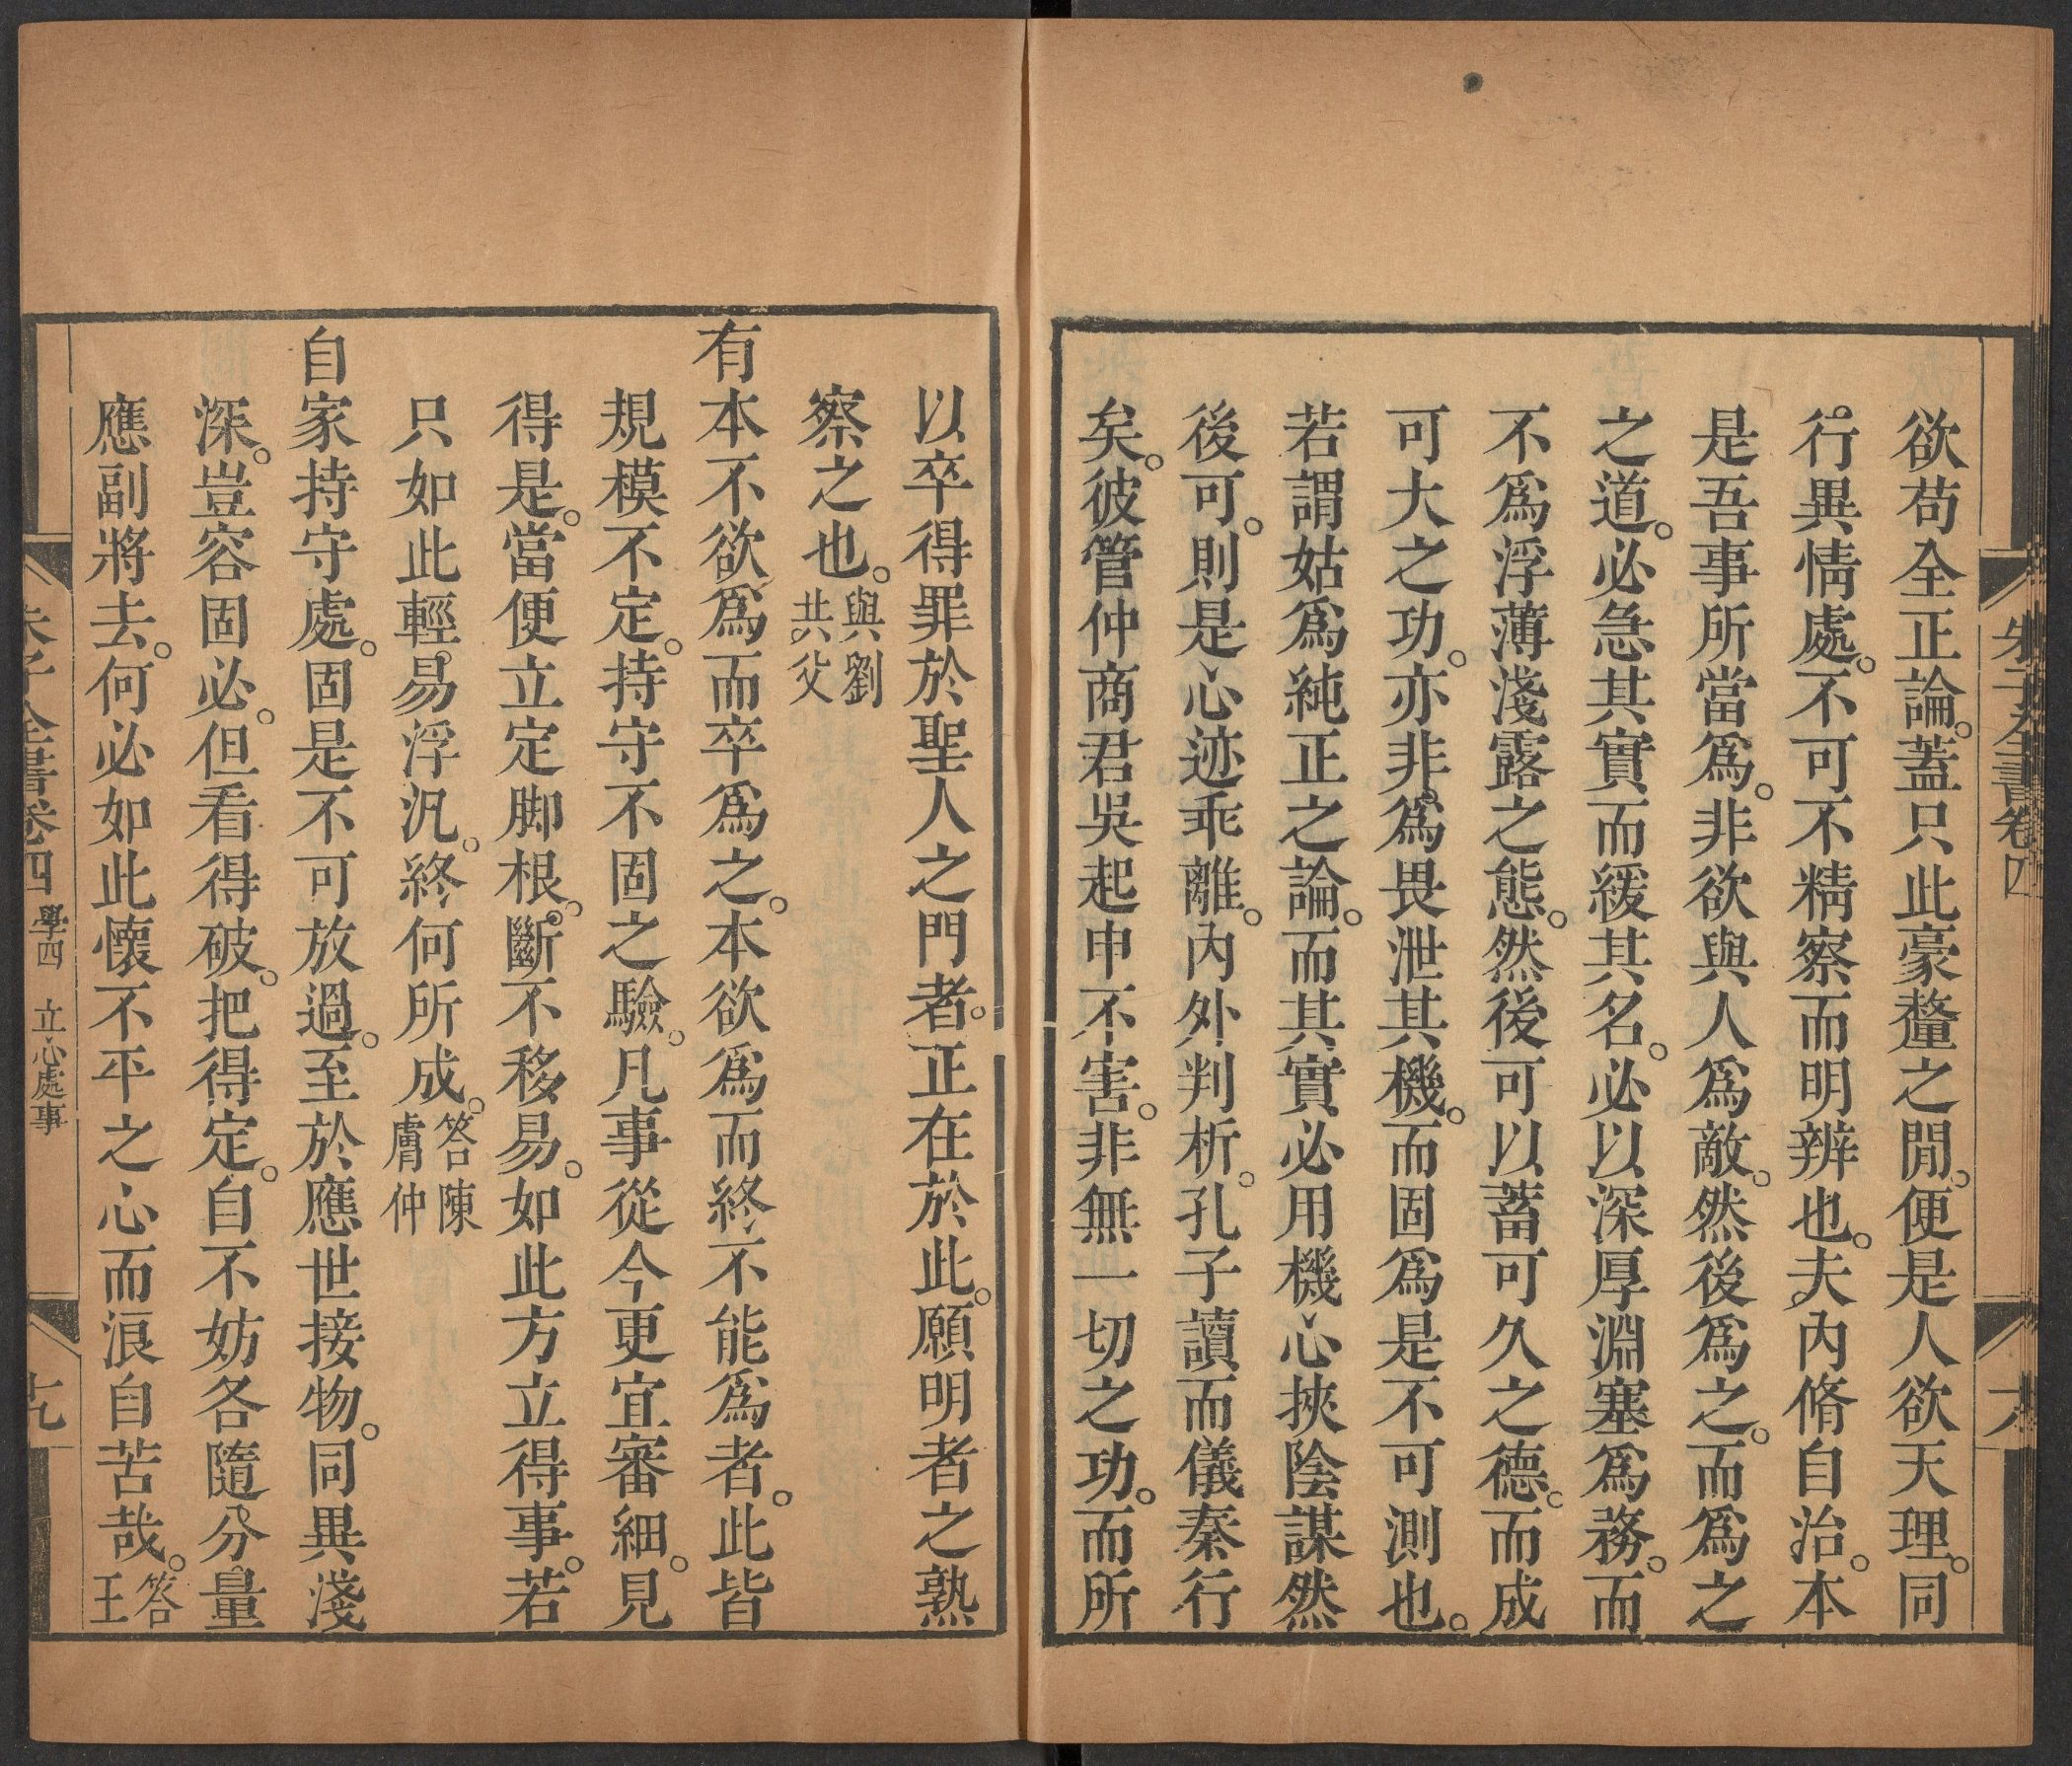 朱子全書卷四
欲苟全正論。蓋只此豪釐之閒。便是人欲天理。同
行異情處。不可不精察而明辨也。夫內脩自治。本
是吾事所當爲。非欲與人爲敵。然後爲之。而爲之
之道。必急其實而緩其名。必以深厚淵塞爲務。而
不爲浮薄淺露之態。然後可以蓄可久之德。而成
可大之功。亦非爲畏泄其機。而固爲是不可測也。
若謂姑爲純正之論。而其實必用機心挾陰謀然
後可。則是心迹乖離。內外判析。孔子讀而儀秦行
矣。彼管仲商君吳起申不害。非無一切之功。而所
以卒得罪於聖人之門者。正在於此。願明者之熟
察之也。與劉共父
有本不欲爲而卒爲之。本欲爲而終不能爲者。此皆
規模不定。持守不固之驗。凡事從今更宜審細。見
得是。當便立定脚根。斷不移易。如此方立得事。若
只如此輕易浮汎。終何所成。答陳膚仲
自家持守處。固是不可放過。至於應世接物。同異淺
深。豈容固必。但看得破。把得定。自不妨各隨分量
應副將去。何必如此懷不平之心而浪自苦哉。答王
朱子全書卷四 學四 立心處事 十九